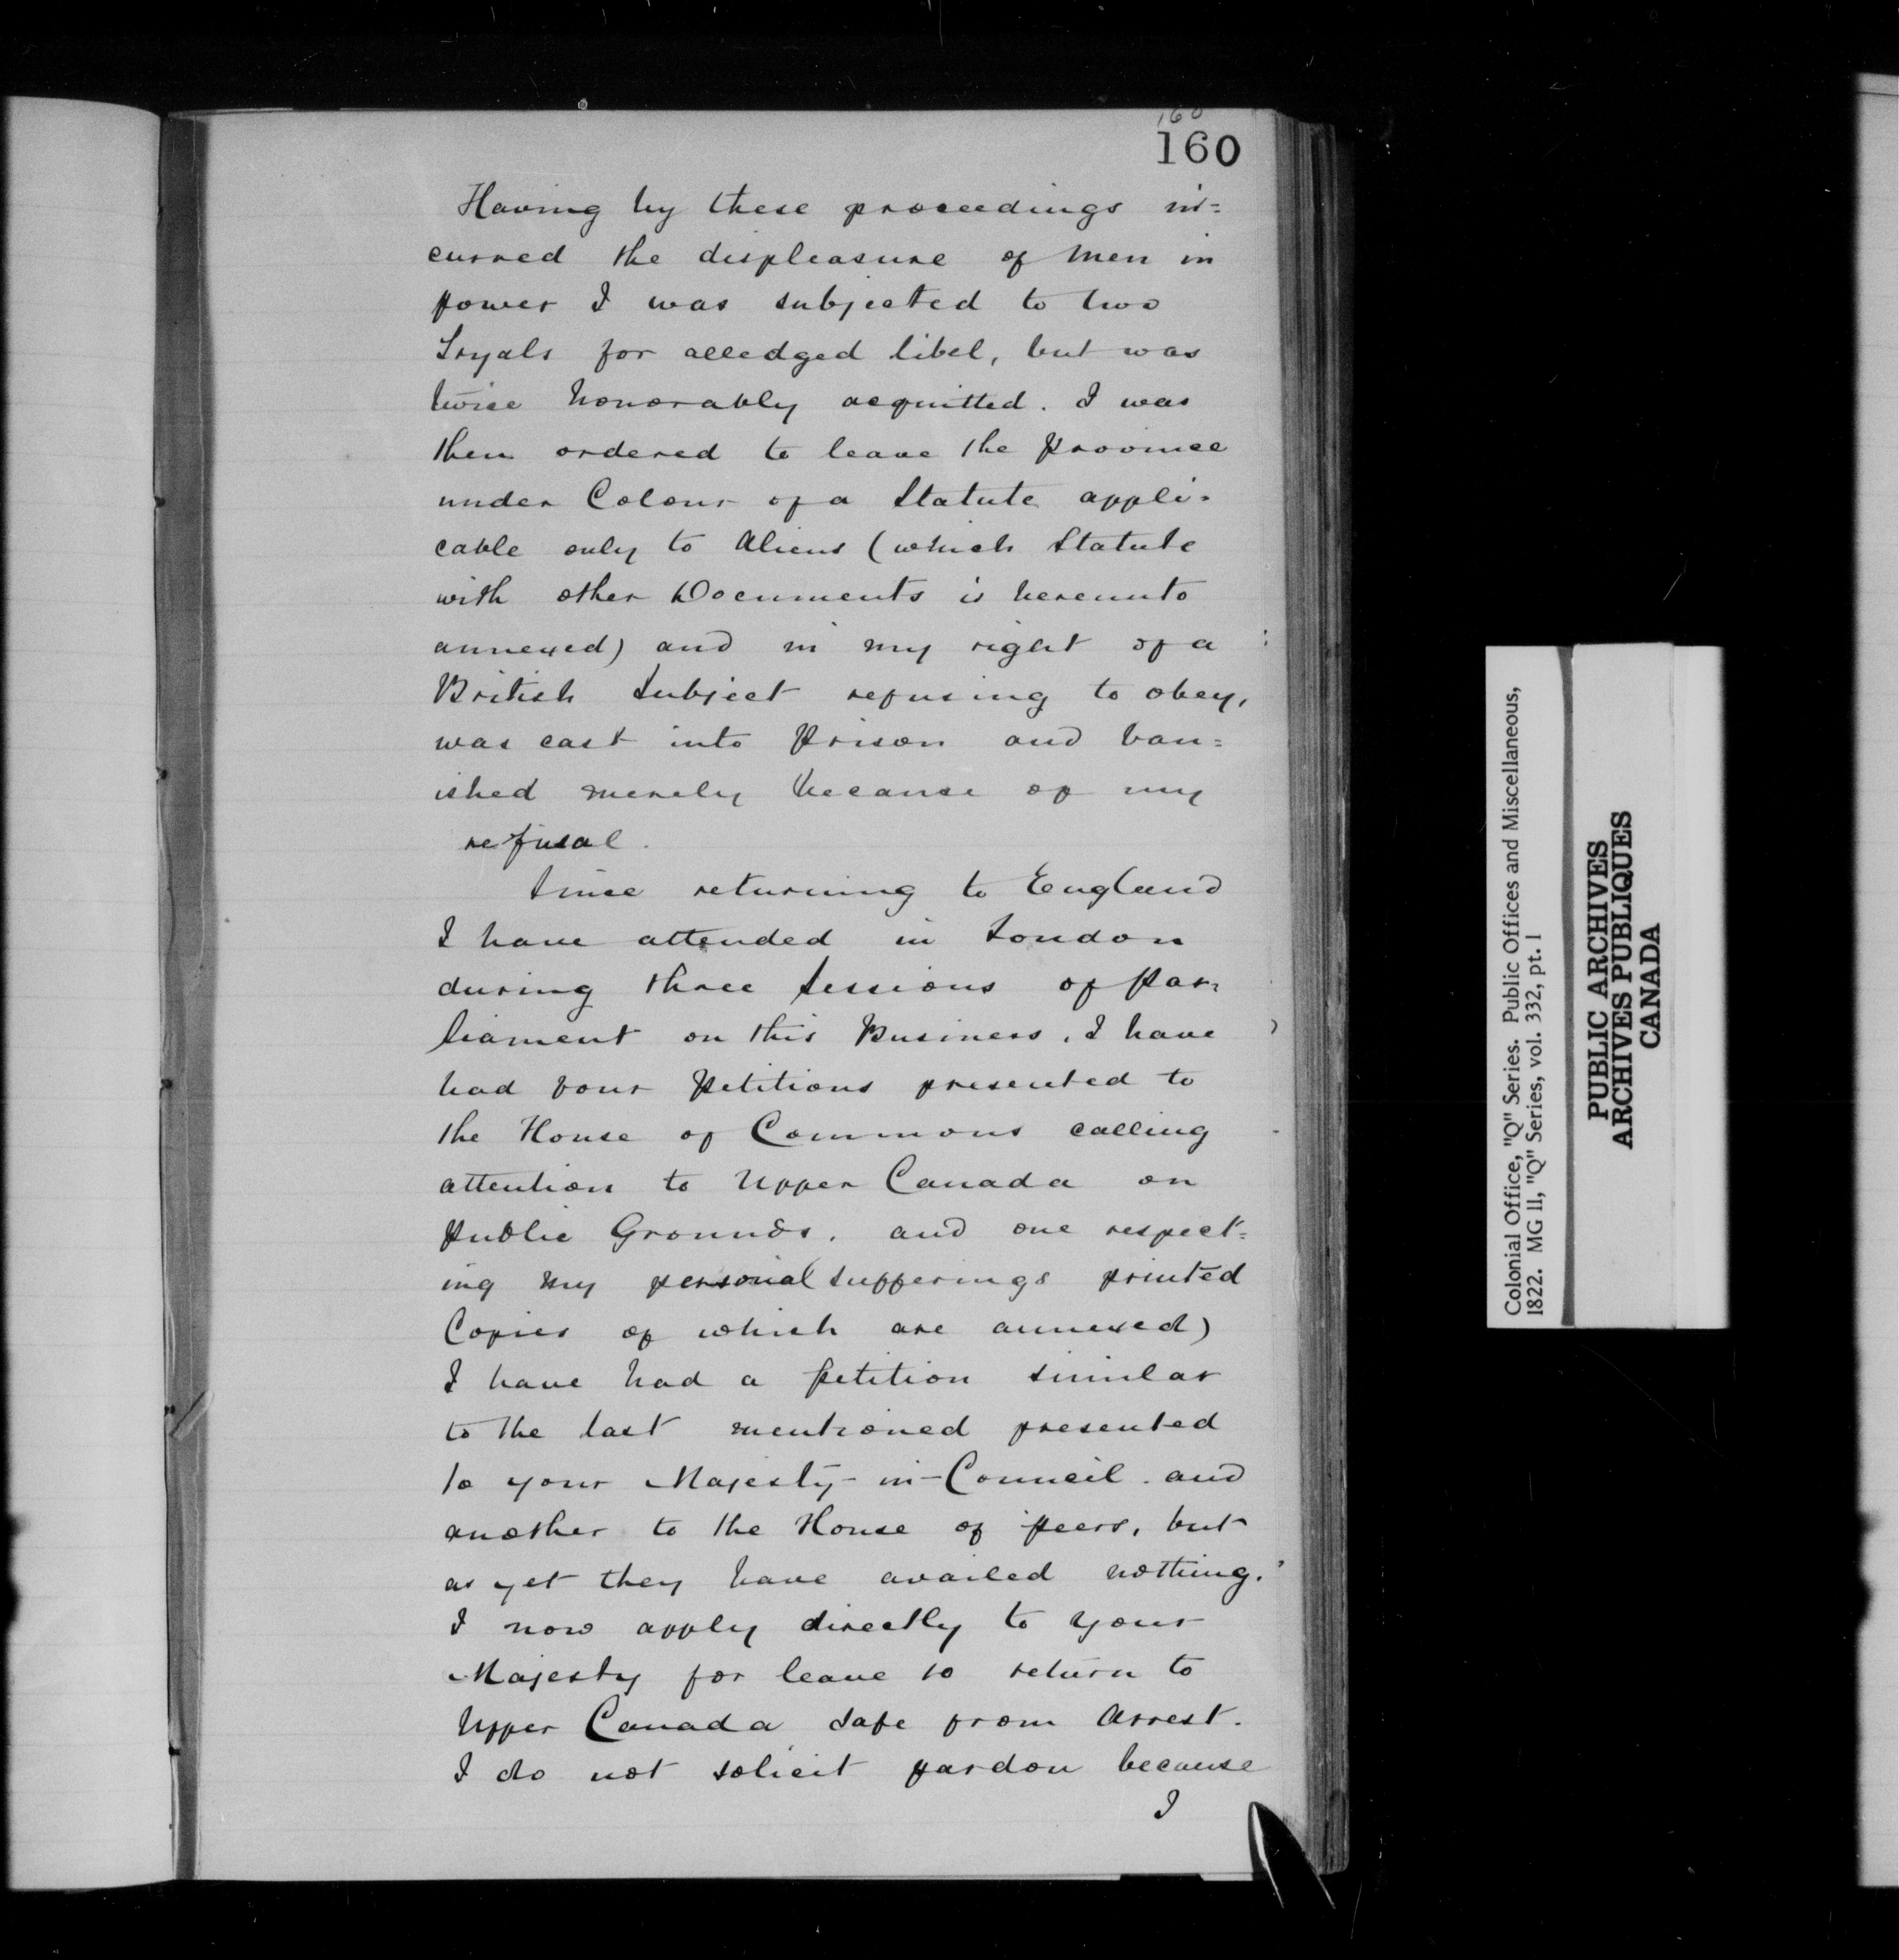 160
160
Having by these proceedings in=
curred the displeasure of Men in
power I was subjected to two
Tryals for alledged libel, but was
twice honorably acquitted. I was
then ordered to leave the province
under Colour of a Statute appli-
cable only to Aliens (which Statute
with other Documents is hereunto
annexed) and in my right of a
British Subject refusing to obey,
was cast into Prison and ban=
ished merely because of my
refusal.
Since returning to England
I have attended in London
during three Sessions of Par-
liament on this Business, I have
had four Petitions presented to
the House of Commons calling
attention to Upper Canada on
Public Grounds, and one respect=
ing my personal sufferings printed
Copies of which are annexed)
I have had a petition similar
to the last mentioned presented
to your Majesty-in-Council and
another to the House of Peers, but
as yet they have availed nothing.
I now apply directly to your
Majesty for leave to return to
Upper Canada safe from Arrest.
I do not solicit pardon because
I
Colonial Office, "Q" Series. Public Offices and Miscellaneous,
1822. MG 11, "Q" Series, vol. 332, pt. 1
PUBLIC ARCHIVES
ARCHIVES PUBLIQUES
CANADA